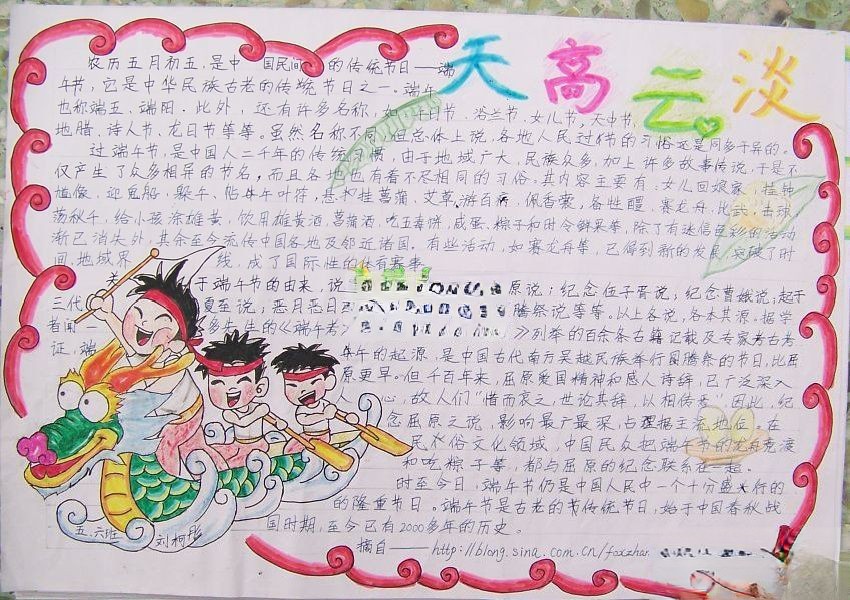 天高云淡
农历五月初五,是中国民间的传统节日——端
午节,它是中华民族古老的传统节日之一。端午
也称端五,端阳。此外,还有许多名称,如:午日节、浴兰节,女儿节,天中节,
地腊、诗人节、龙日节等等。虽然名称不同,但总体上说,各地人民过节的习俗还是同多于异的。
过端午节,是中国人二千年的传统习惯,由于地域广大,民族众多,加上许多故事传说,于是不
仅产生了众多相异的节名,而且各地也有着不尽相同的习俗。其内容主要有:女儿回娘家,挂钟
馗像,迎鬼船、躲午、帖午叶符,悬挂菖蒲、艾草,游百病,佩香囊,备牲醴,赛龙舟,比武,击球,
荡秋千,给小孩涂雄黄,饮用雄黄酒、菖蒲酒,吃五毒饼、咸蛋、粽子和时令鲜果等,除了有迷信色彩的活动
渐已消失外,其余至今流传中国各地及邻近诸国。有些活动,如赛龙舟等,已得到新的发展,突破了时
间、地域界线,成了国际性的体育赛事。
关于端午节的由来,说 原说;纪念伍子胥说;纪念曹娥说;起于
三代夏至说;恶月恶日 腾祭说等等。以上各说,各本其源。据学
者闻一多先生的《端午考》 》列举的百余条古籍记载及专家考古考
证,端午的起源,是中国古代南方吴越民族举行图腾祭的节日,比屈
原更早。但千百年来,屈原爱国精神和感人诗辞,已广泛深入
人心,故人们“惜而哀之,世论其辞,以相传焉”,因此,纪
念屈原之说,影响最广最深,占据主流地位。在
民俗文化领域,中国民众把端午节的龙舟竞渡
和吃粽子等,都与屈原的纪念联系在一起。
时至今日,端午节仍是中国人民中一个十分盛行的
的隆重节日。端午节是古老的传统节日,始于中国春秋战
国时期,至今已有2000多年的历史。
摘自——http://blong.sina.com.cn/foxzhar
五.六班 刘柯彤